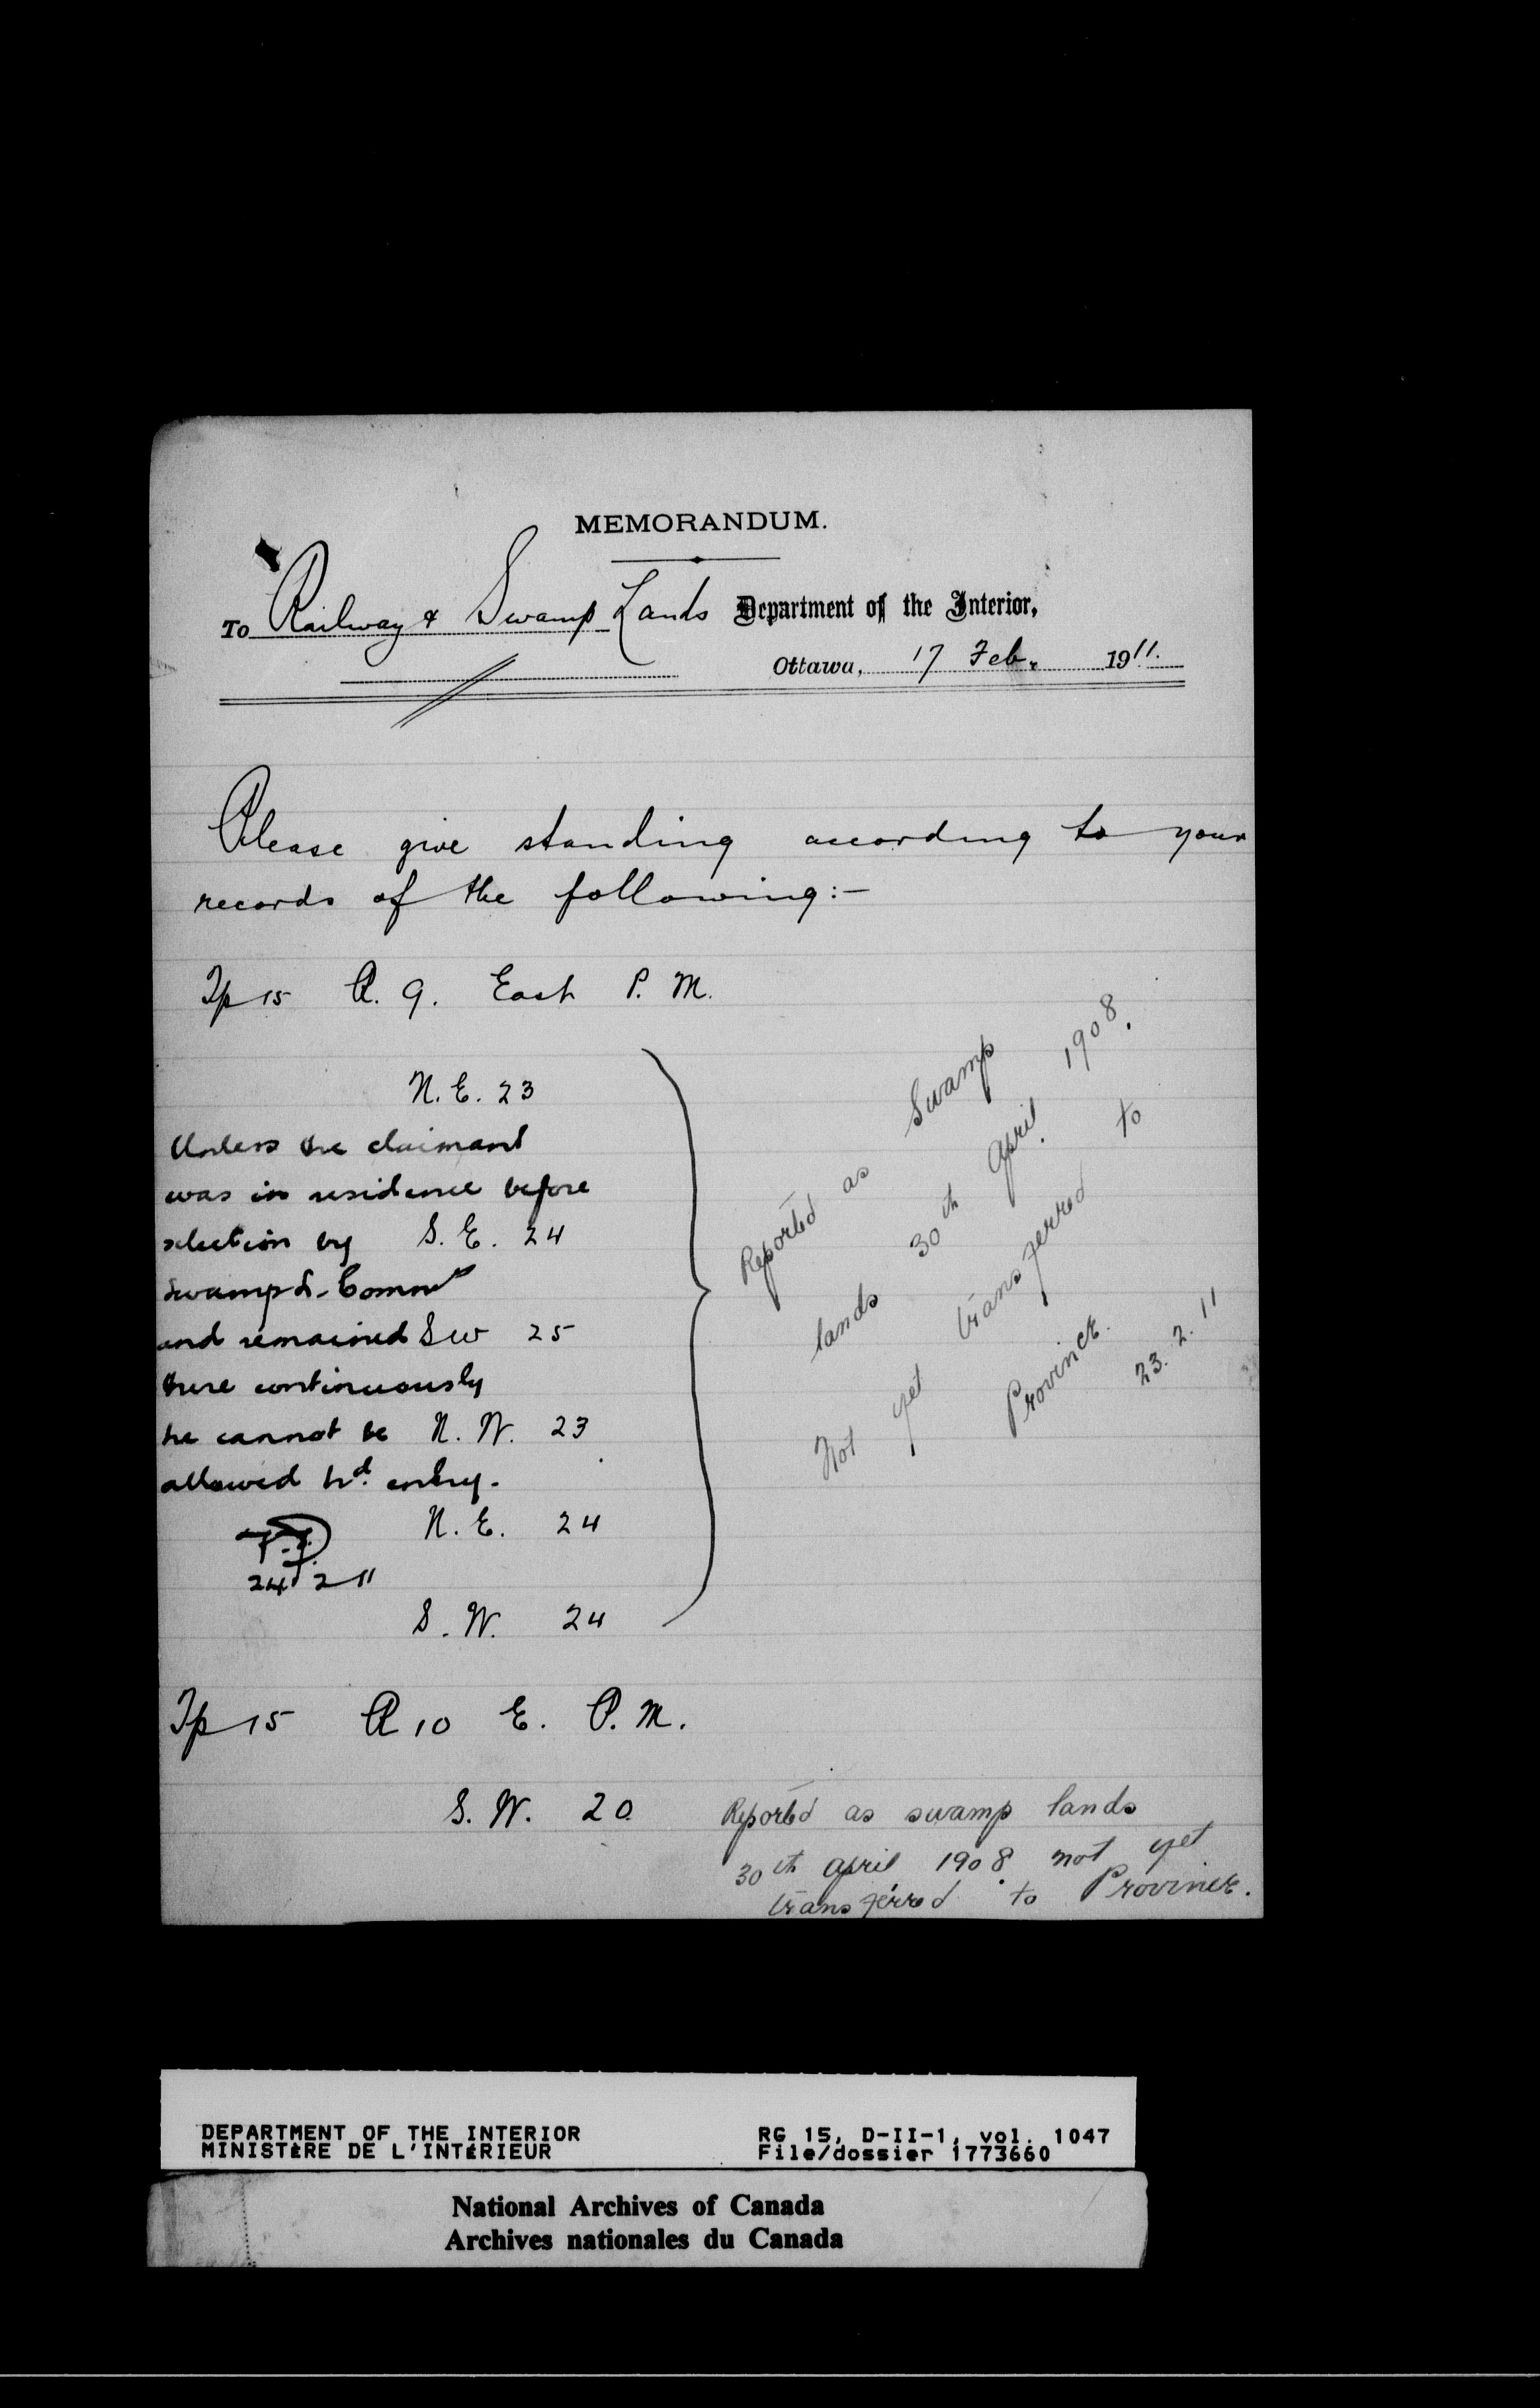 MEMORANDUM.
To Railway & Swamp Lands Department of the Interior,
Ottawa, 17 Feb. 1911.
Please give standing according to your
records of the following:-
Tp 15 R. 9. East P. M.
N. E. 23
Unless the claimant
was in residence before
selection by S. E. 24
Swamp L. Comm
and remained SW 25
there continuously
he cannot be N. W. 23
allowed hd. entry.
N. E. 24
24 2 11
S. W. 24
Reported as Swamp
lands 30th April 1908.
Not yet transferred to
Province.
23. 2. 11
Tp 15 R 10 E. P. M.
S. W. 20. Reported as swamp lands
30th April 1908 not yet
transferred to Province.
DEPARTMENT OF THE INTERIOR RG 15, D-II-1, vol. 1047
MINISTÈRE DE L'INTÉRIEUR File/dossier 1773660
National Archives of Canada
Archives nationales du Canada